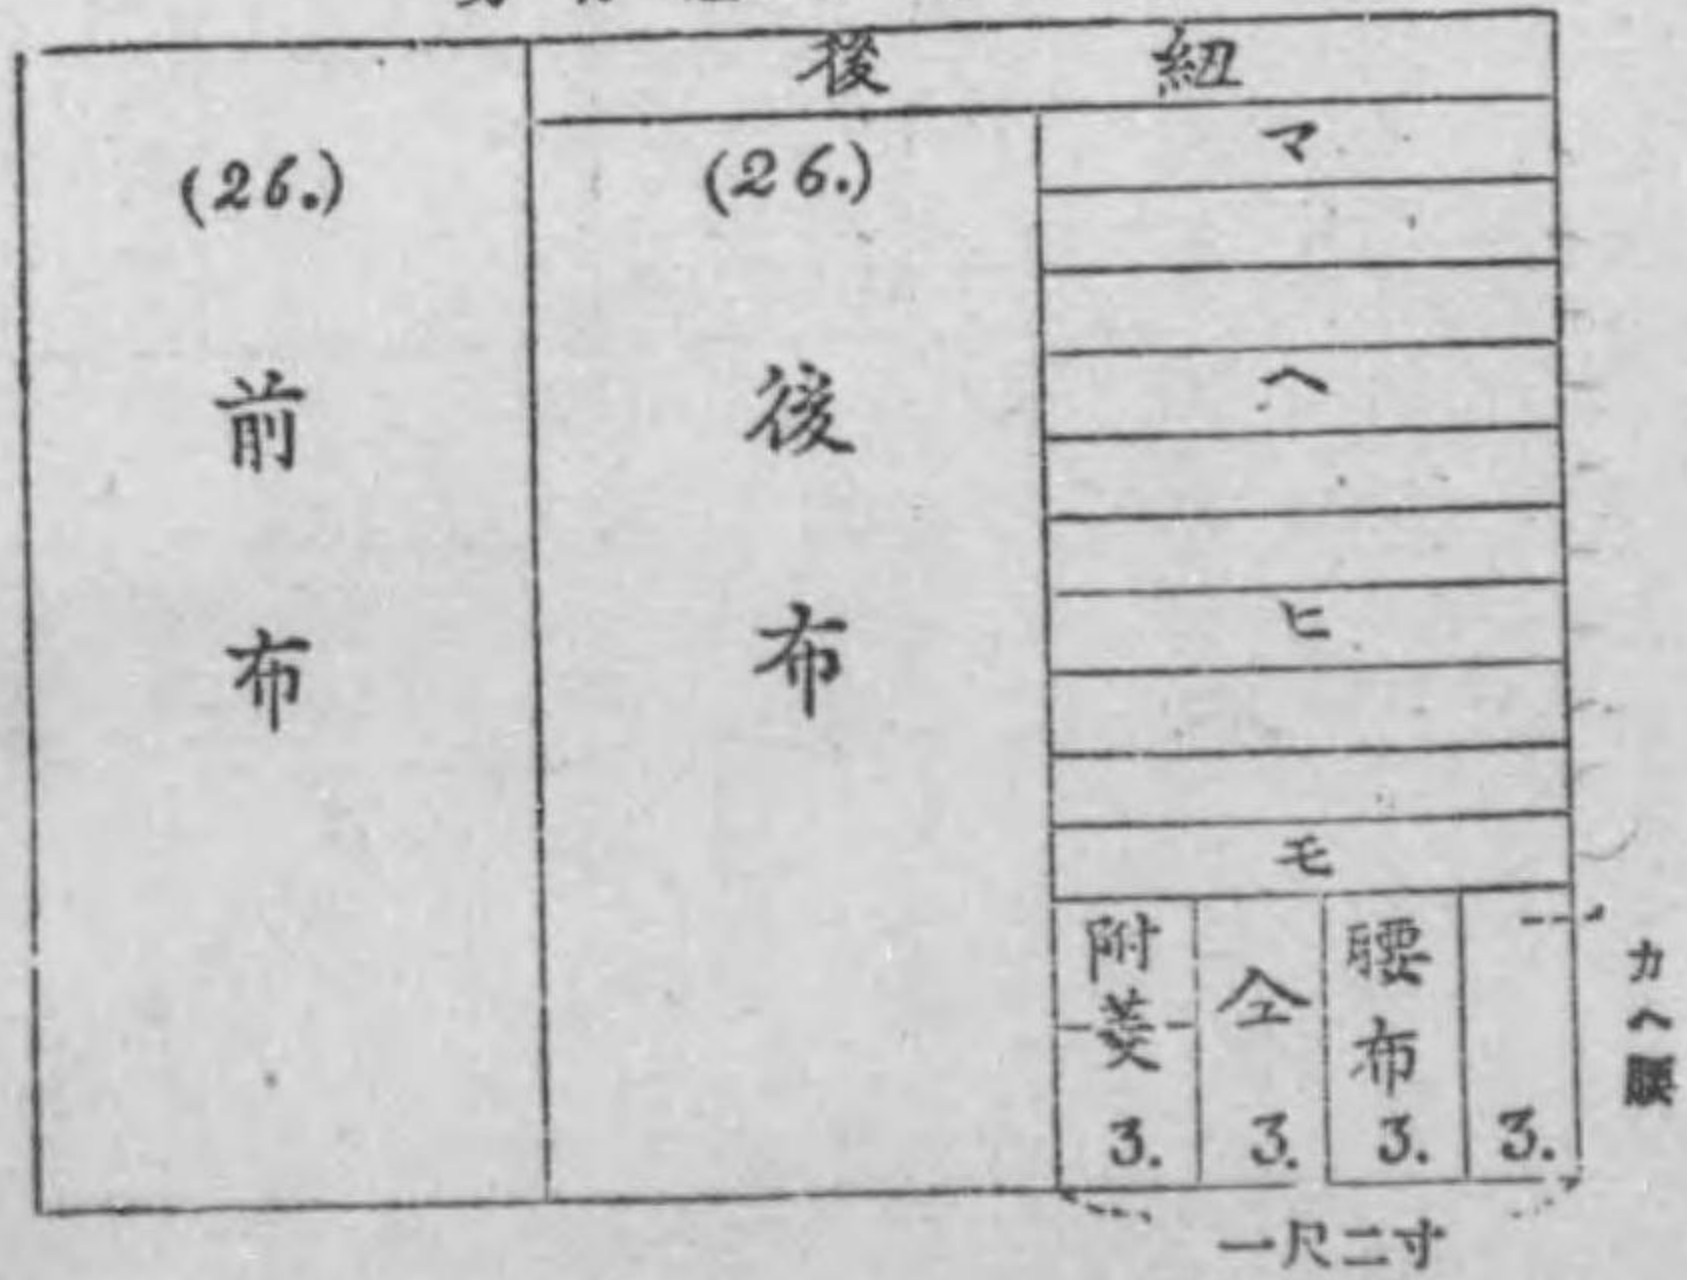 後 紐
(26.)
前布
(26.)
後布
マ
ヘ
ヒ
モ
附菱
3.
仝
3.
腰布
3.
3.
カヘ腰
一尺二寸